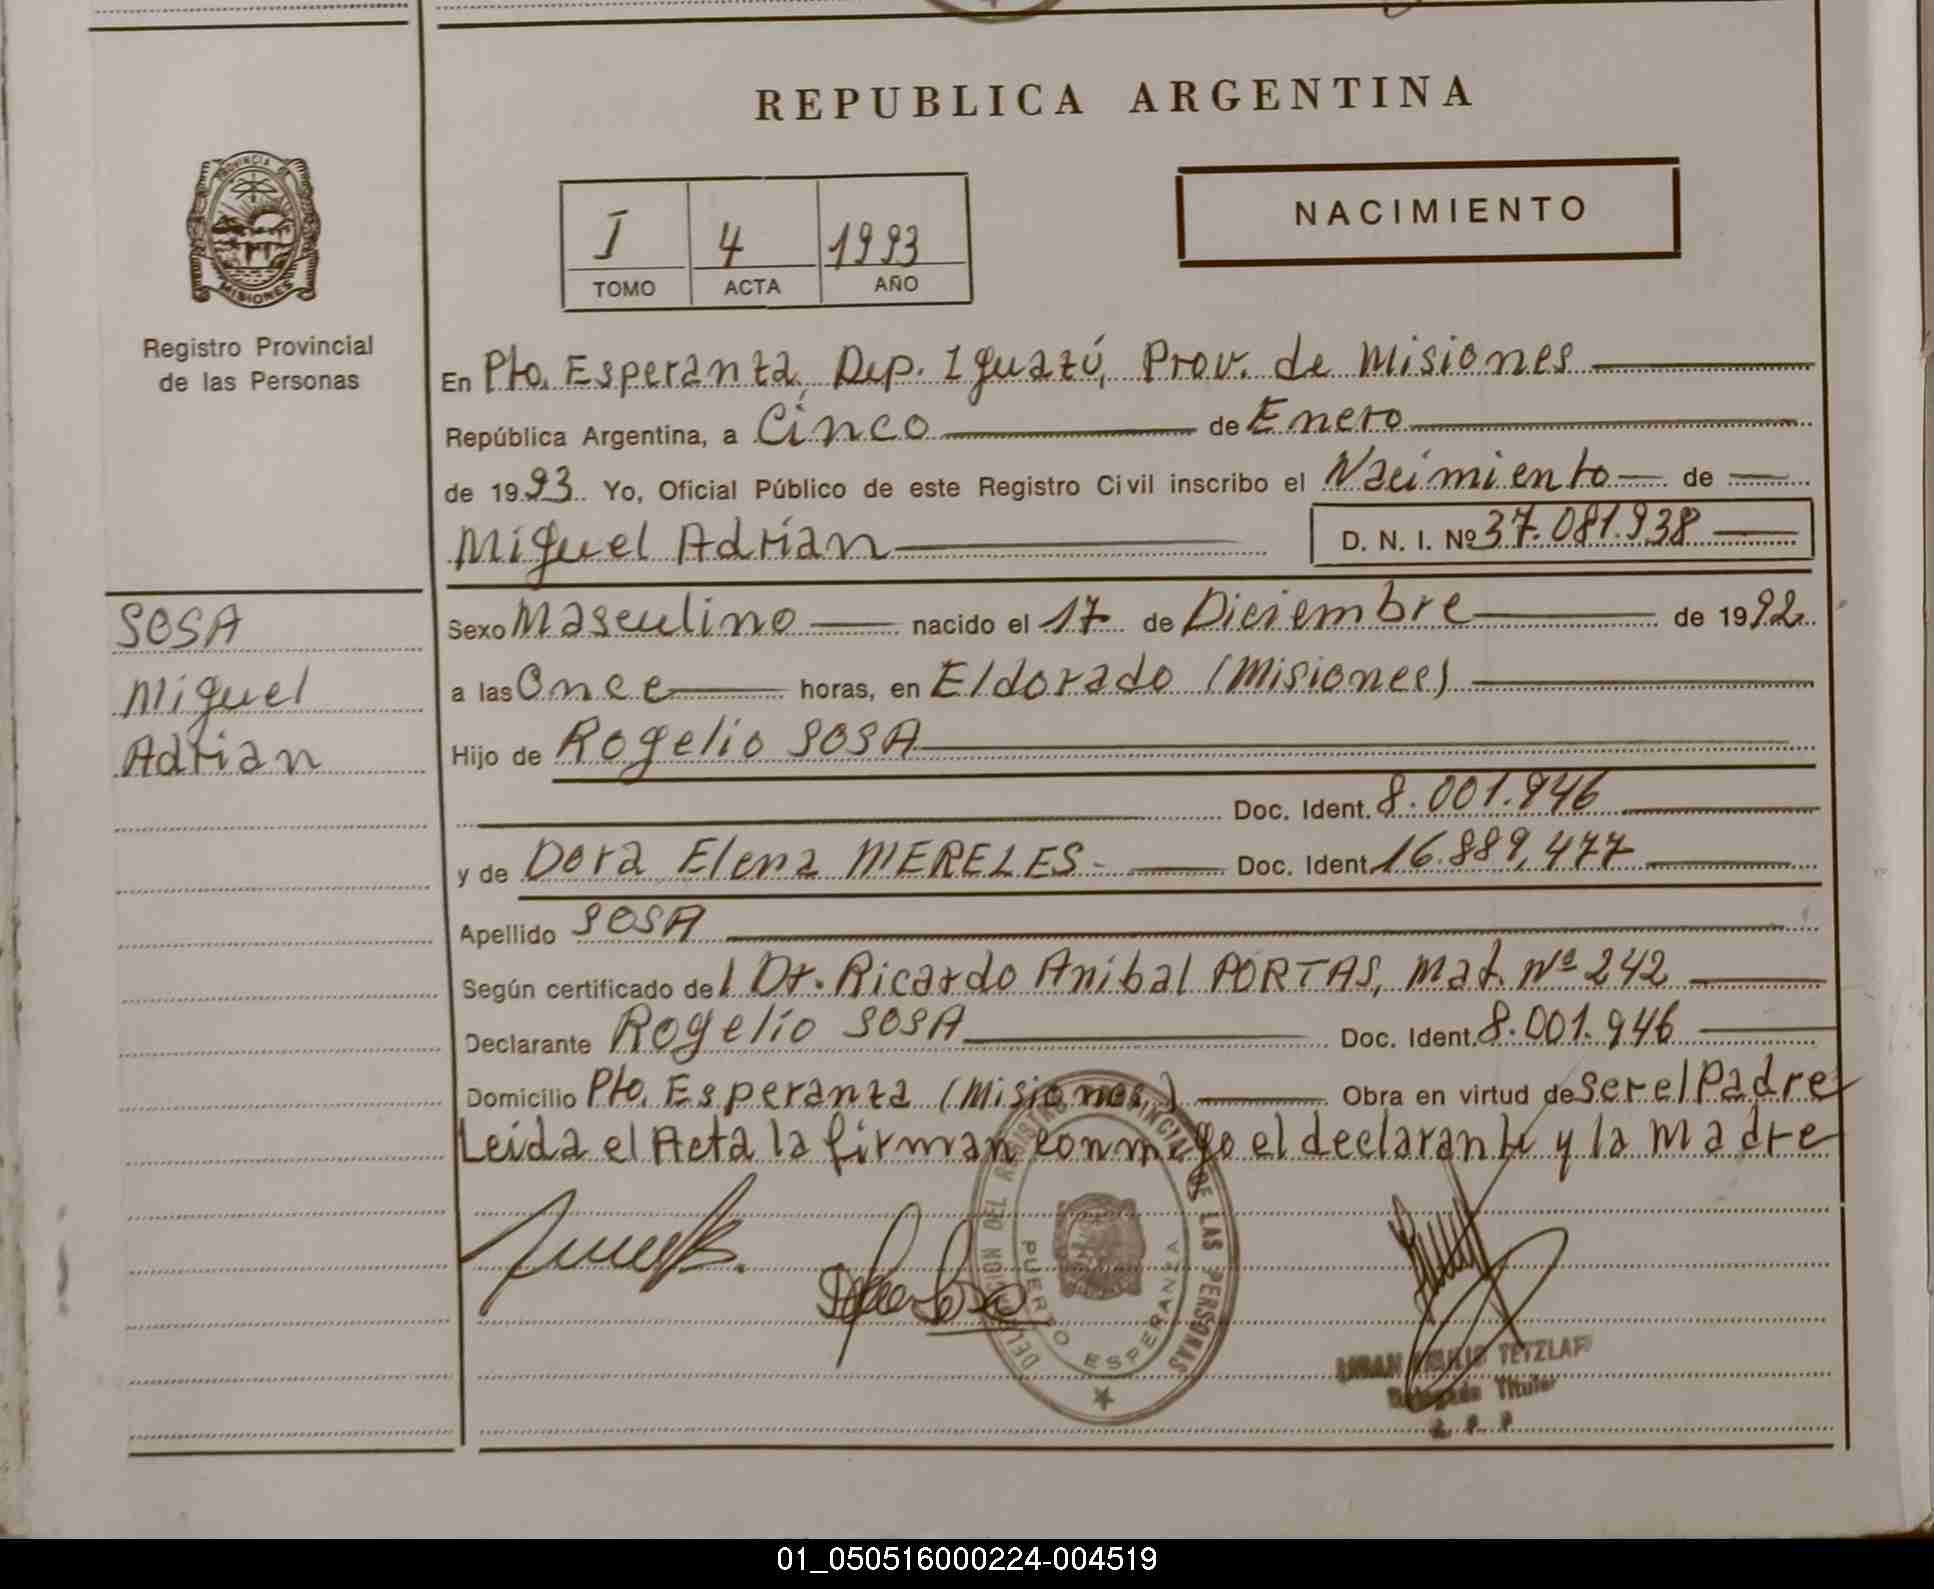 REPUBLICA ARGENTINA
PROVINCIA DE
MISIONES
Registro Provincial
de las Personas
I 4 1993
TOMO ACTA AÑO
NACIMIENTO
En Pto. Esperanza Dep. Iguazú, Prov. de Misiones
República Argentina, a Cinco de Enero
de 1993 Yo, Oficial Público de este Registro Civil inscribo el Nacimiento de
Miguel Adrián D. N. I. Nº 37.081.938
SOSA
Miguel
Adrian
Sexo Masculino nacido el 17 de Diciembre de 1992
a las Once horas, en Eldorado (Misiones)
Hijo de Rogelio SOSA
Doc. Ident. 8.001.946
y de Dora Elena MERELES- Doc. Ident. 16.889,477
Apellido SOSA
Según certificado del Dr. Ricardo Anibal PORTAS, Mat. Nº 242
Declarante Rogelio SOSA Doc. Ident. 8.001.946
Domicilio Pto. Esperanza (Misiones) Obra en virtud de Ser el Padre
Leida el Acta la firman conmigo el declarante y la Madre
DEL REGISTRO PROVINCIAL DE LAS PERSONAS
PUERTO ESPERANZA
TETZLAF
Delegado Titular
01_050516000224-004519